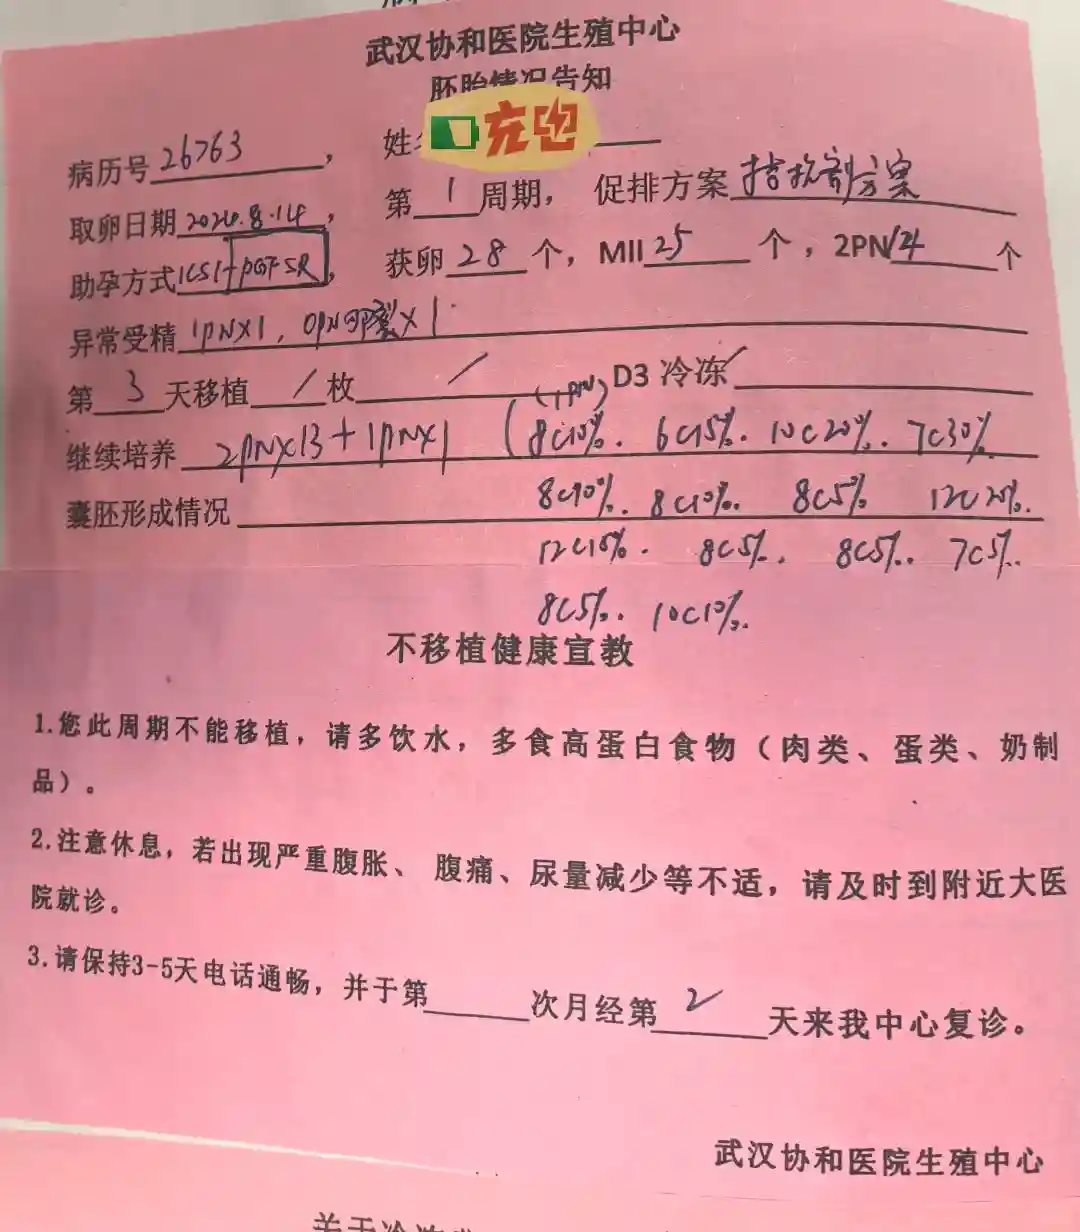 武汉协和医院生殖中心
胚胎情况告知
病历号 26763 , 姓名 充电
取卵日期 2024.8.14 , 第 1 周期, 促排方案 拮抗剂方案
助孕方式 ICSI+PGT-SR , 获卵 28 个, MII 25 个, 2PN 14 个
异常受精 1PN×1, 0PN卵裂×1.
第 3 天移植 / 枚 / D3 冷冻 /
(1PN)
继续培养 2PN×13+1PN×1 (8C10%. 6C15%. 10C20%. 7C30%.
囊胚形成情况 8C10%. 8C10%. 8C5% 12C20%.
12C15%. 8C5%. 8C5%. 7C5%.
8C5%. 10C10%.
不移植健康宣教
1.您此周期不能移植,请多饮水,多食高蛋白食物(肉类、蛋类、奶制
品)。
2.注意休息,若出现严重腹胀、腹痛、尿量减少等不适,请及时到附近大医
院就诊。
3.请保持3-5天电话通畅,并于第 次月经第 2 天来我中心复诊。
武汉协和医院生殖中心
关于冷冻